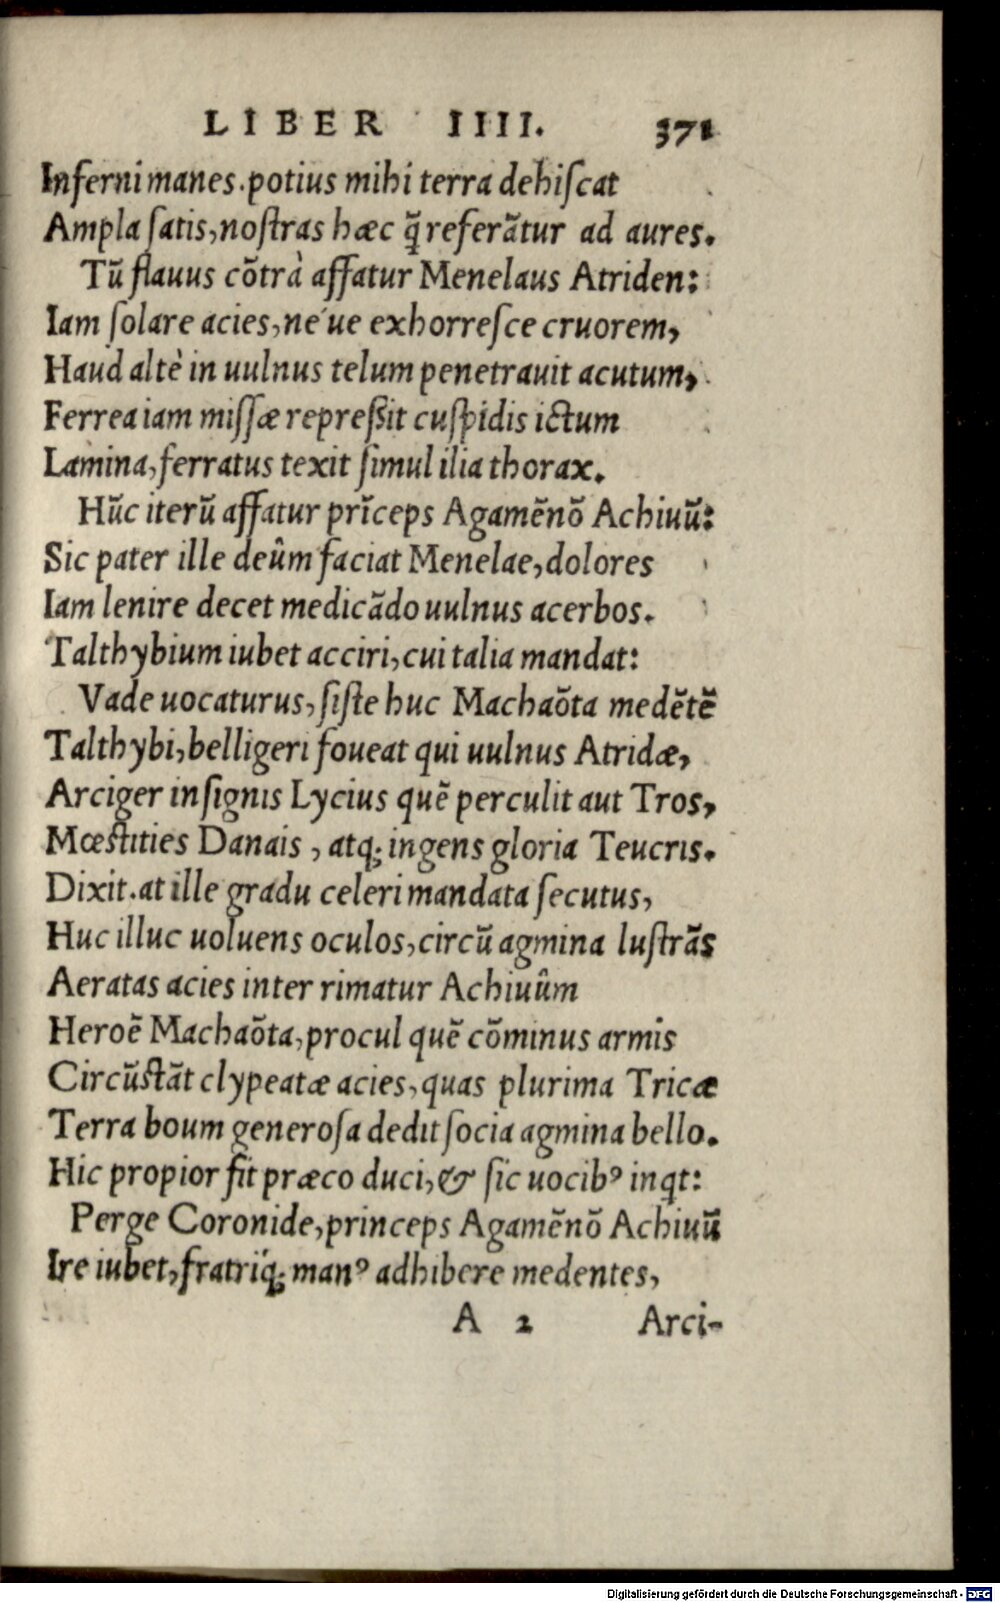 LIBER IIII. 371
Inferni manes. potius mihi terra dehiscat
Ampla satis, nostras hæc q̃ referãtur ad aures.
Tũ flauus cõtrà affatur Menelaus Atriden:
Iam solare acies, ne'ue exhorresce cruorem,
Haud altè in uulnus telum penetrauit acutum,
Ferrea iam missæ repreßit cuspidis ictum
Lamina, ferratus texit simul ilia thorax.
Hũc iterũ affatur prĩceps Agamẽnõ Achiuũ:
Sic pater ille deûm faciat Menelae, dolores
Iam lenire decet medicãdo uulnus acerbos.
Talthybium iubet acciri, cui talia mandat:
Vade uocaturus, siste huc Machaõta medẽtẽ
Talthybi, belligeri foueat qui uulnus Atridæ,
Arciger insignis Lycius quẽ perculit aut Tros,
Mœstities Danais, atq; ingens gloria Teucris.
Dixit. at ille gradu celeri mandata secutus,
Huc illuc uoluens oculos, circũ agmina lustrãs
Aeratas acies inter rimatur Achiuûm
Heroẽ Machaõta, procul quẽ cõminus armis
Circũstãt clypeatæ acies, quas plurima Tricæ
Terra boum generosa dedit socia agmina bello.
Hic propior fit præco duci, & sic uocibꝰ inqt:
Perge Coronide, princeps Agamẽnõ Achiuũ
Ire iubet, fratriq́; manꝰ adhibere medentes,
A 2 Arci-
Digitalisierung gefördert durch die Deutsche Forschungsgemeinschaft - DFG